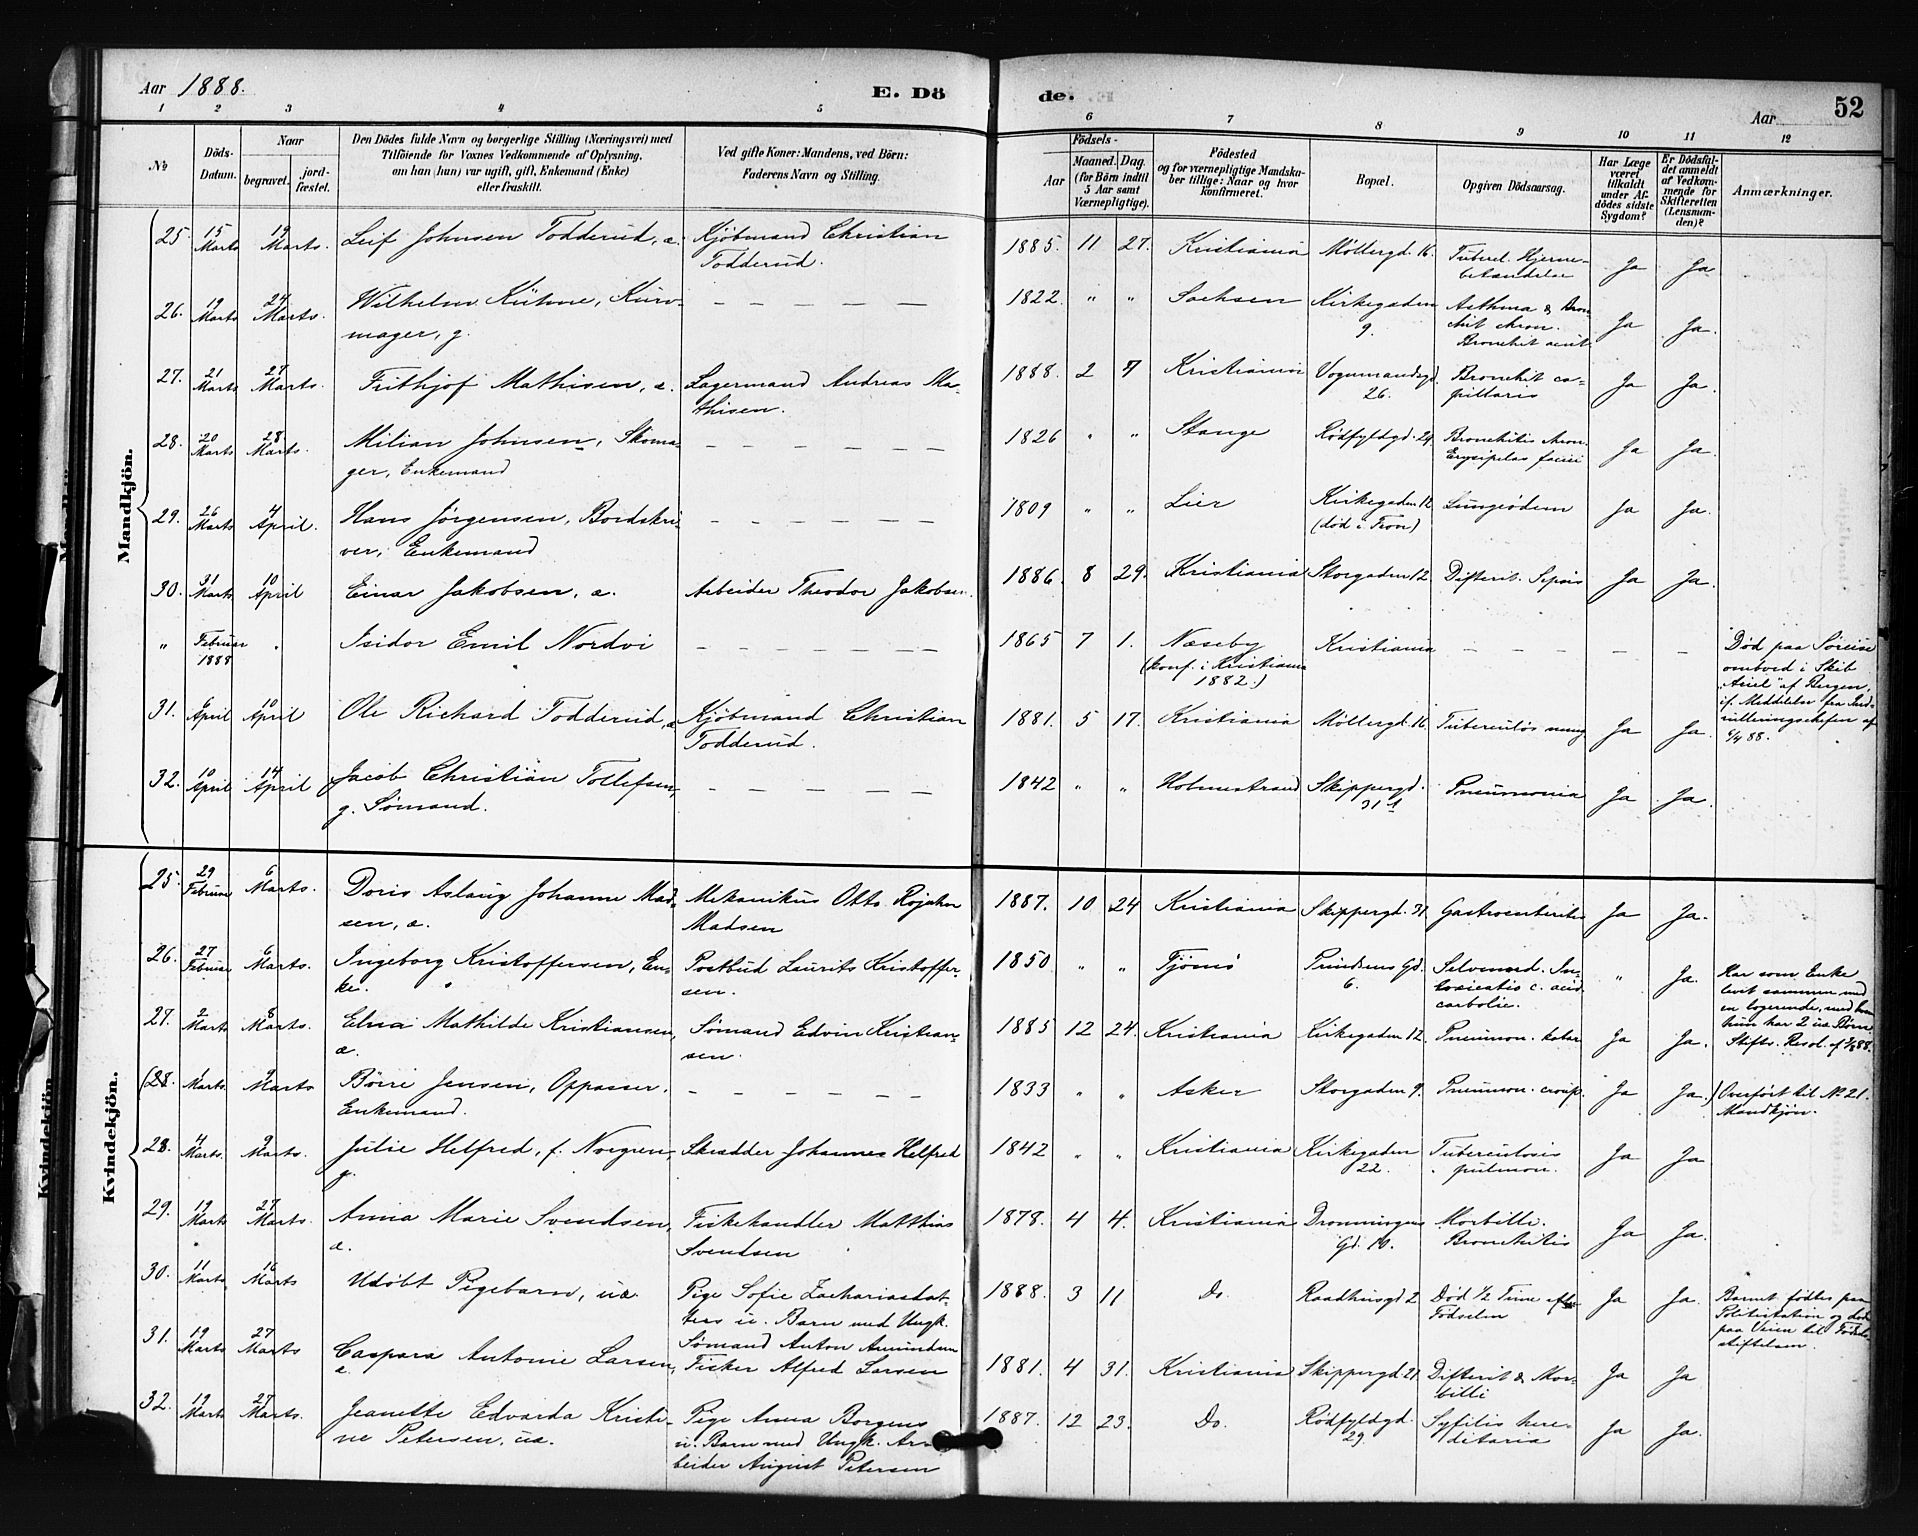 Aar 1888.
E. Dö
de.
Aar
52
1 2 3 4 5 6 7 8 9 10 11 12
No
Döds-
Datum.
Naar
begravet.
jord-
fæstet.
Den Dödes fulde Navn og borgerlige Stilling (Næringsvei) med
Tilföiende for Voxnes Vedkommende af Oplysning,
om han (hun) var ugift, gift, Enkemand (Enke)
eller fraskilt.
Ved gifte Koner: Mandens, ved Börn:
Faderens Navn og Stilling.
Födsels-
Aar
Maaned. Dag.
(for Börn indtil
5 Aar samt
Værnepligtige).
Födested
og for værnepligtige Mandska-
ber tillige: Naar og hvor
konfirmeret.
Bopæl.
Opgiven Dödsaarsag.
Har Læge
været
tilkaldt
under Af-
dödes sidste
Sygdom?
Er Dödsfal-
det anmeldt
af Vedkom-
mende for
Skifteretten
(Lensman-
den)?
Anmærkninger.
Mandkjön.
25. 15 Marts 19 Marts. Leif Johnsen Todderud, æ. Kjöbmand Christian
Todderud.
1885. 11 27. Kristiania Möllergd. 16. Tubercl. Hjerne-
betændelse Ja Ja
26. 19 Marts 24 Marts. Wilhelm Kühne, Kurv-
mager, g. — — — — —
1822. " " Sachsen Kirkegaden
9. Asthma & Bron
chit chron.
Bronchit acut. Ja Ja.
27. 21 Marts 27 Marts. Frithjof Mathisen, æ. Lagermand Andreas Ma-
thisen.
1888. 2 7 Kristiania Vognmandsgd.
26. Bronchit ca-
pillaris Ja Ja.
28. 20 Marts 28 Marts. Milian Johnsen, Skoma-
ger, Enkemand — — — — —
1826 " " Stange Rödfyldgd. 24. Bronchitis chron.
Erysipelas faciei Ja Ja.
29. 26 Marts 4 April. Hans Jörgensen, Bordskri-
ver, Enkemand — — — — —
1809 " " Lier Kirkegaden 12
(död i Tron) Lungeödem Ja Ja.
30. 31 Marts 10 April Einar Jakobsen, æ. Arbeider Theodor Jakobsen.
1886. 8 29. Kristiania Storgaden 12. Difterit. Sepsis Ja Ja.
" Februar
1888 " Isidor Emil Nordvi — — — — —
1865 7 1. Næseby
(konf. i Kristiania
1882.) Kristiania — — — — — Död paa Söreise
ombord i Skib
"Ariel" af Bergen,
if. Meddelelse fra Ind-
rulleringschefen af
6/4 88.
31. 6 April 10 April Ole Richard Todderud, æ Kjöbmand Christian
Todderud.
1881. 5 17. Kristiania Möllergd. 16. Tuberculös mening Ja Ja.
32. 10 April 14 April Jacob Christian Tollefsen,
g. Sömand. — — — — —
1842 " " Holmestrand Skippergd.
31 Pneumonia Ja Ja.
Kvindekjön.
25. 29 Februar 6 Marts. Doris Aslaug Johanne Mad-
sen, æ. Mekanikus Otto Rojahn
Madsen
1887. 10 24 Kristiania Skippergd. 31. Gastroenterit Ja Ja.
26. 27 Februar 6 Marts. Ingeborg Kristoffersen, En-
ke. Postbud Laurits Kristoffer-
sen.
1850. " " Tjömö Prindsens Gd.
6. Selvmord. In-
toxicatio c. acid.
carbolic. " Ja. Har som Enke
levet sammen med
en logerende, med hvem
hun har 2 uæ. Börn
Stifts. Resol. af 3/3 88.
27. 2 Marts 8 Marts. Elna Mathilde Kristiansen,
æ. Sömand Edvin Kristian-
sen.
1885 12 24. Kristiania Kirkegaden 12. Pneumon. katar Ja Ja.
(28. 1 Marts. 9 Marts Börre Jensen, Oppasser,
Enkemand. — — — — —
1833 " " Asker Storgaden 9. Pneumon. croup. Ja Ja.) Overfört til No 21.
Mandkjön.
28. 4 Marts. 9 Marts. Julie Helfred, f. Norgren,
g. Skrædder Johannes Helfred
1842 " " Kristiania Kirkegaden
22. Tuberculosis
pulmon. Ja Ja
29. 19 Marts 27 Marts. Anna Marie Svendsen,
æ. Fiskehandler Matthias
Svendsen
1878. 4 4. Kristiania Dronningens
Gd. 10. Morbilli.
Bronchitis Ja Ja.
30. 11 Marts 16 Marts Udöbt Pigebarn, uæ. Pige Sofie Zachariasdat-
ters u. Barn med Ungk.
Sömand Anton Amundsen
1888. 3 11 Do. Raadhusgd 2 Död 1/2 Time efter
Födselen Ja Ja. Barnet födtes paa
Politistation og död
paa Veien til Födsels-
stiftelsen.
31. 19 Marts 27 Marts Caspara Antonie Larsen,
æ. Fisker Alfred Larsen
1881. 4 31. Kristiania Skippergd 21. Difterit & Mor-
billi Ja Ja
32. 19 Marts 27 Marts. Jeanette Edvarda Kristi-
ne Petersen, uæ. Pige Anna Borgens
u. Barn med Ungk. Ar-
beider August Petersen
1887. 12 23. Do. Rödfyldgd.
29. Syfilis here-
ditaria Ja Ja.